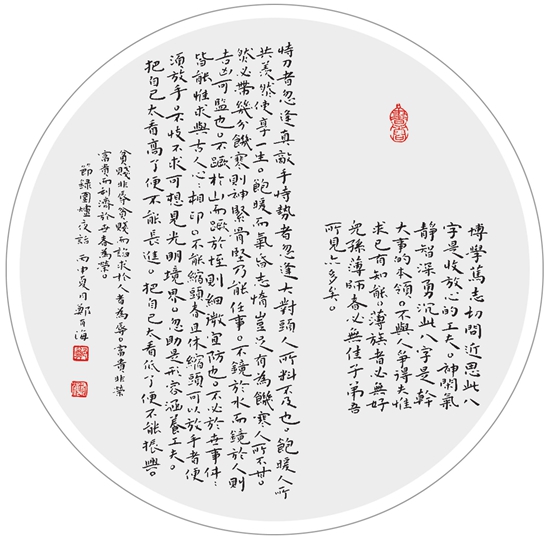 博學篤志切問近思此八
字是收放心的工夫。神閑氣
靜智深勇沉此八字是幹
大事的本領。不與人爭得失惟
求己有知能。薄族者必無好
兒孫薄師者必無佳子弟吾
所見亦多矣。
恃力者忽逢真敵手恃勢者忽逢大對頭人所料不及也。飽暖人所
共羨然使享一生。飽暖而氣昏志惰豈足有為饑寒人所不甘。
然必帶幾分饑寒則神緊骨堅乃能任事。不鏡於水而鏡於人則
吉凶可監也。不蹶於山而蹶於垤則細微宜防也。不必於世事件:
皆能惟求與古人心:相印。不能縮頭者且休縮頭可以放手者便
須放手。不忮不求可想見光明境界。忽助是形容涵養工夫。
把自己太看高了便不能長進。把自己太看低了便不能振興。
貧賤非辱貧賤而諂求於人者為辱。富貴非榮
富貴而利濟於世者為榮。
節錄圍爐夜話 丙申夏月鄭海